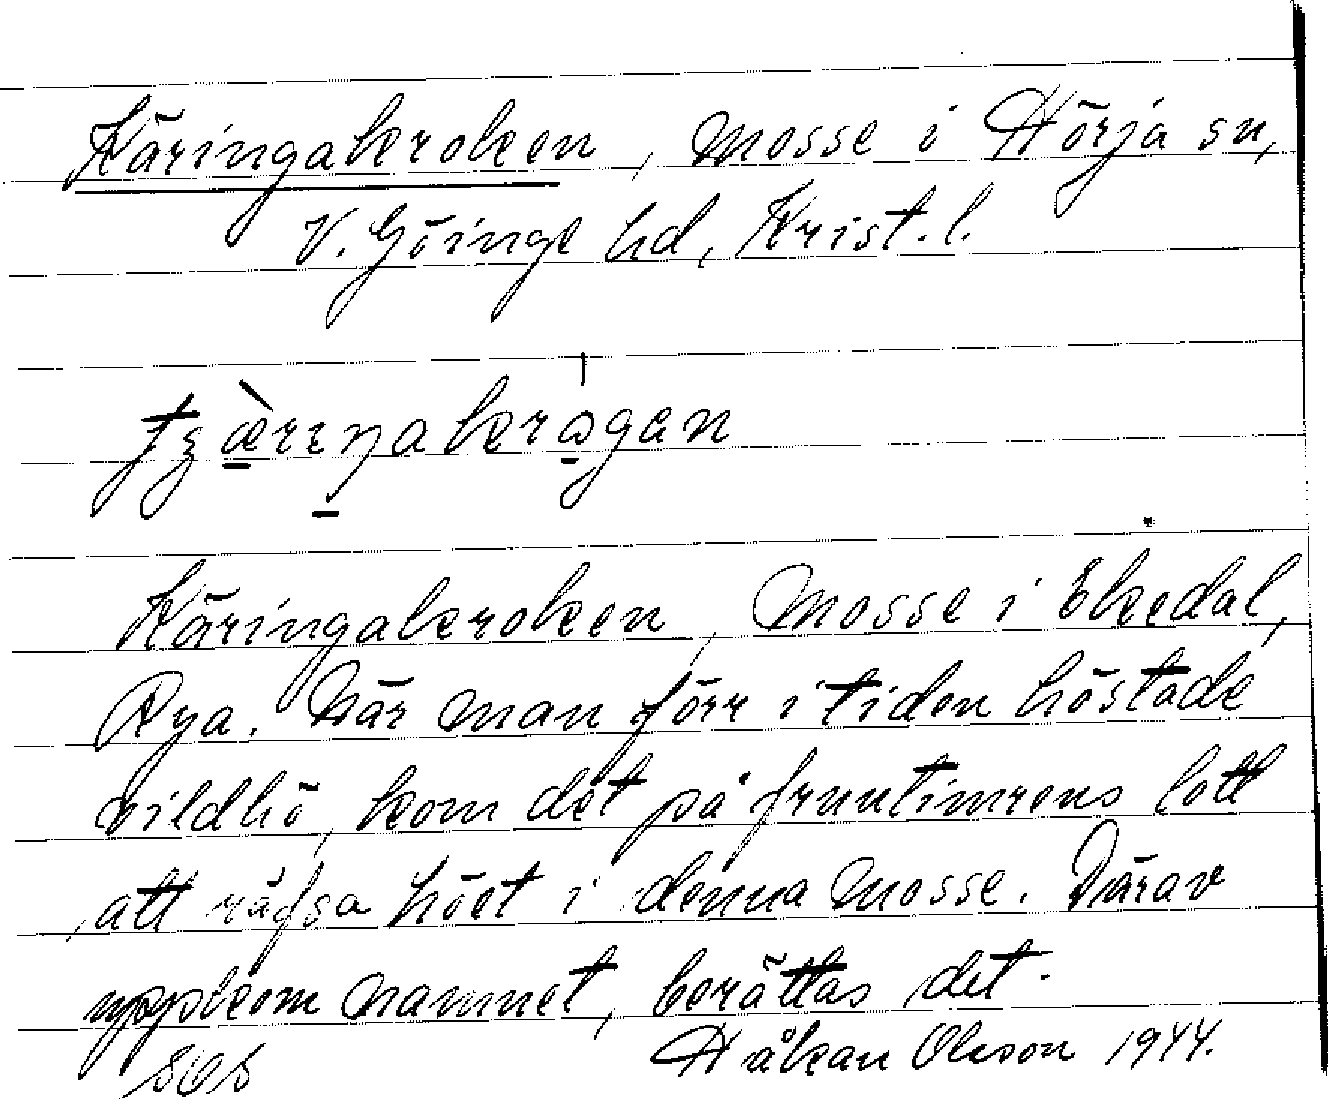 Käringakroken, mosse i Hörja sn,
V. Göinge hd, Krist. l.
Käringakroken, mosse i Ekedal,
Rya. När man förr i tiden höstade
vildhö, kom det på fruntimrens lott
att räfsa höet i denna mosse. Därav
uppkom namnet, berättas det.
Håkan Olsson 1944.